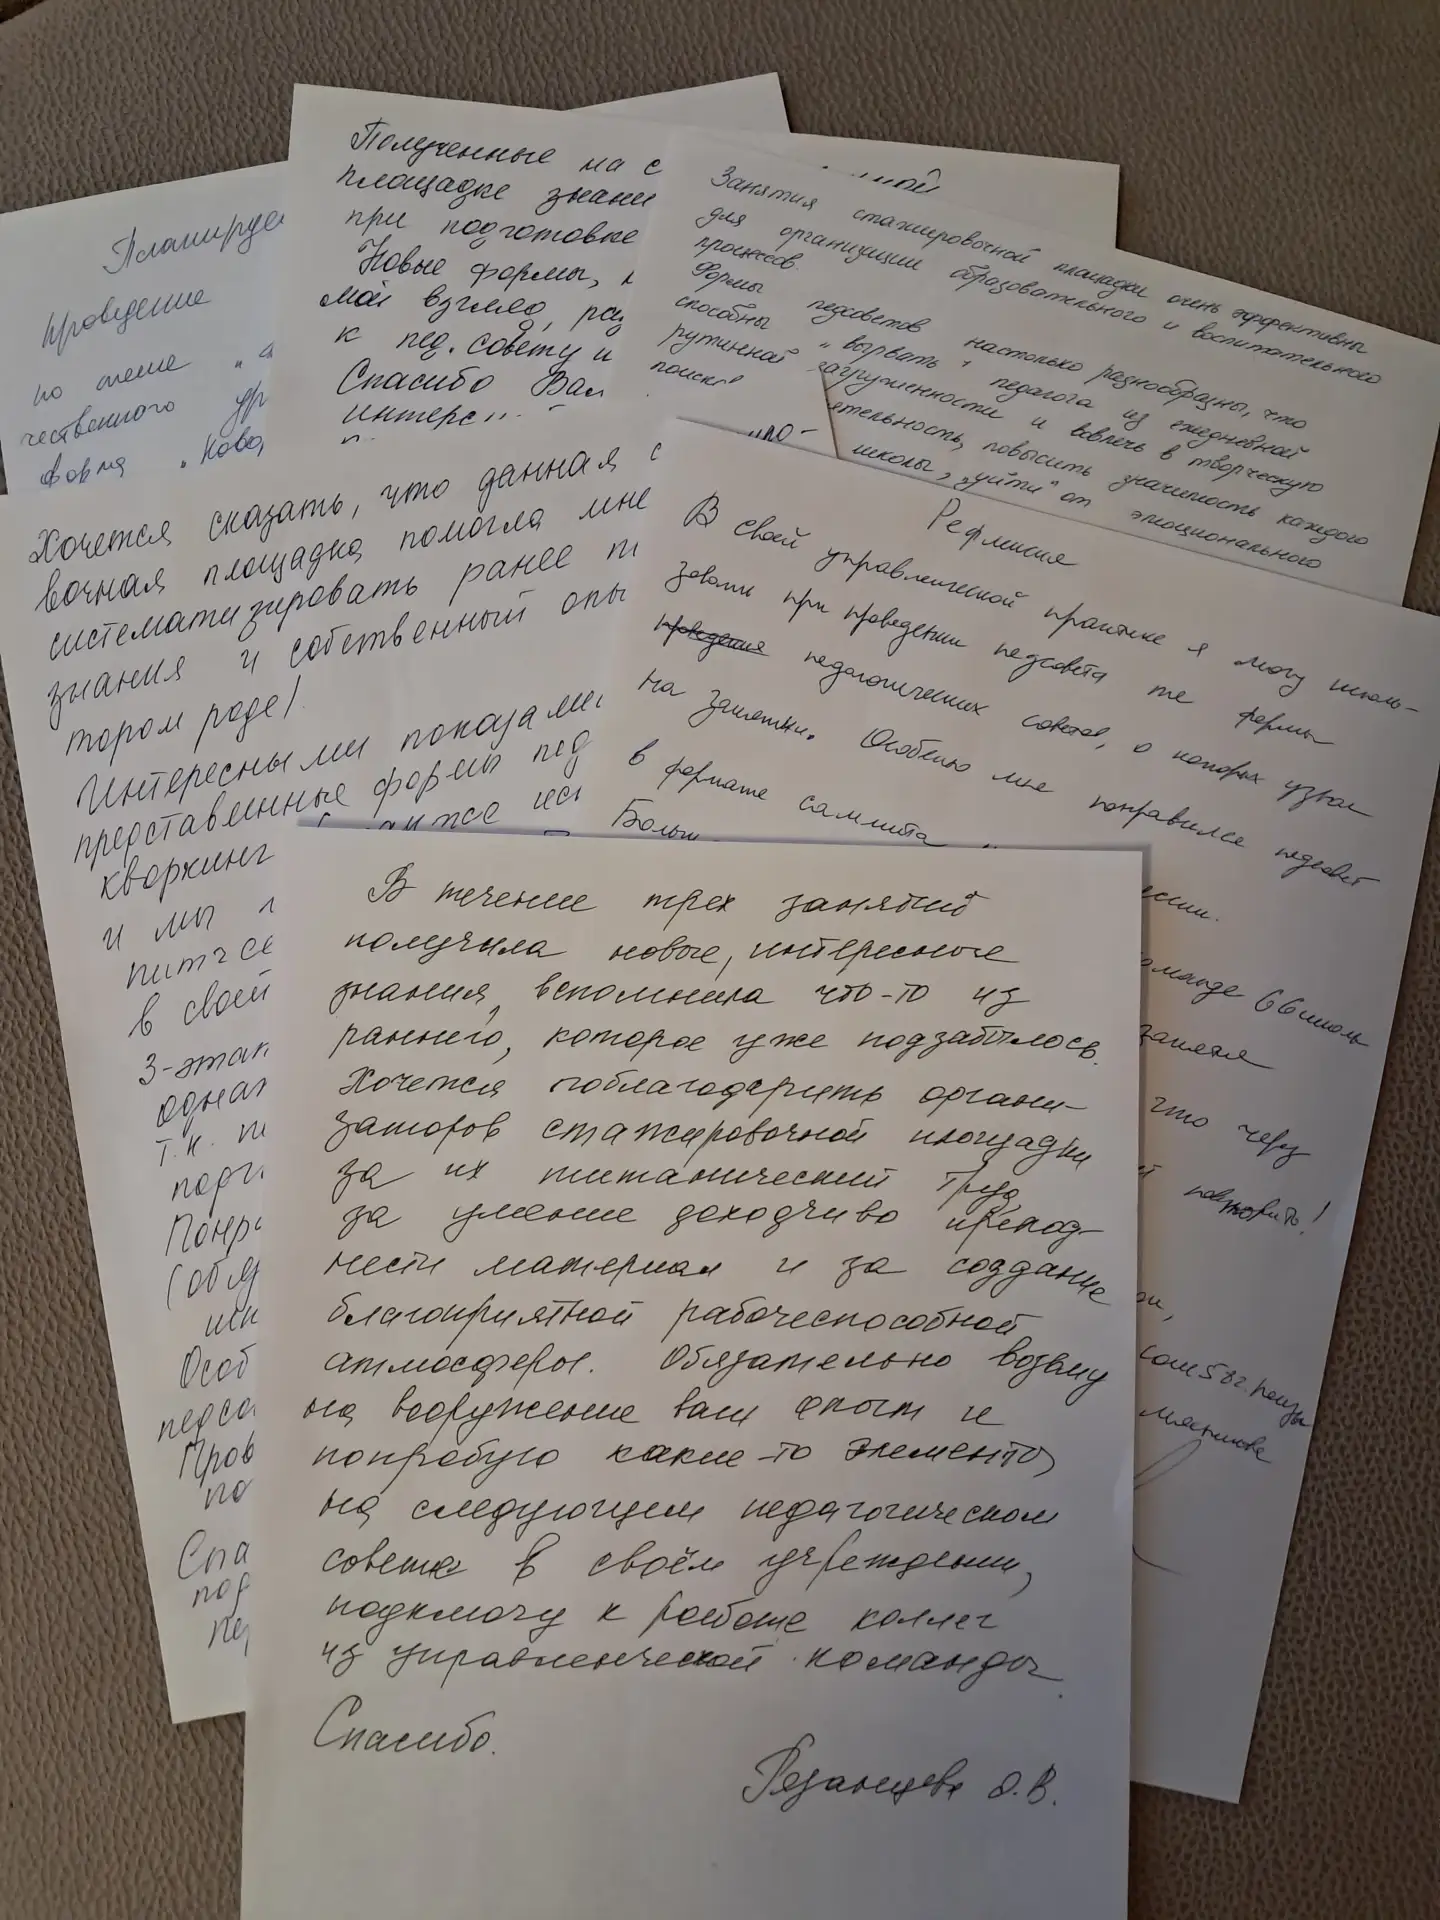 Планируе
проведение
по теме
чественного
форма "Ново
Полученные на с
площадке знани
при подготовке
Новые формы,
мой взгляд, раз
к пед. совету и
Спасибо Вам
интерс
Занятия стажировочной площадки очень эффективны
для организации образовательного и воспитательного
процессов.
Формы педсоветов настолько разнообразны, что
способны "вырвать" педагога из ежедневной
рутинной загруженности и вовлечь в творческую
поиско
ятельность, повысить значимость каждого
школы, "уйти" от эмоционального
Хочется сказать, что данная с
вочная площадка помогла мне
систематизировать ранее п
знания и собственный опы
тором роде!
Интересными показали
представленные формы пед
кворкинг
и мы
питчсе
в своей
3-этап
однак
т.к. п
Понра
Особ
педсо
Пров
по
Спа
под
Рефлексия
В своей управленческой практике я могу исполь-
зовать при проведении педсовета те формы
проведения педагогических советов, о которых узнал
на занятии. Особенно мне понравился педсовет
в формате саммита
Больш
ссии.
оманде 66 школ
занятия
что через
повторить!
В течение трех занятий
получила новые, интересные
знания, вспомнила что-то из
раннего, которое уже подзабылось.
Хочется поблагодарить органи-
заторов стажировочной площадки
за их титанический труд,
за умение доходчиво препод-
нести материал и за создание
благоприятной работоспособной
атмосферы. Обязательно возьму
на вооружение ваш опыт и
попробую какие-то элементы
на следующем педагогическом
совете в своём учреждении,
подключу к работе коллег
из управленческой команды.
Спасибо.
Рязанцева О.В.